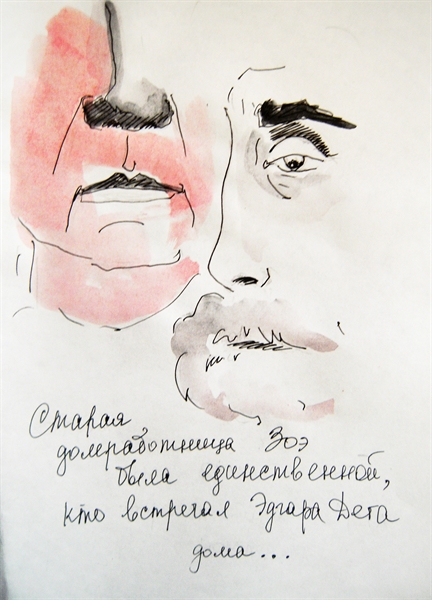 Старая
домработница Зоэ
была единственной,
кто встречал Эдгара Дега
дома...